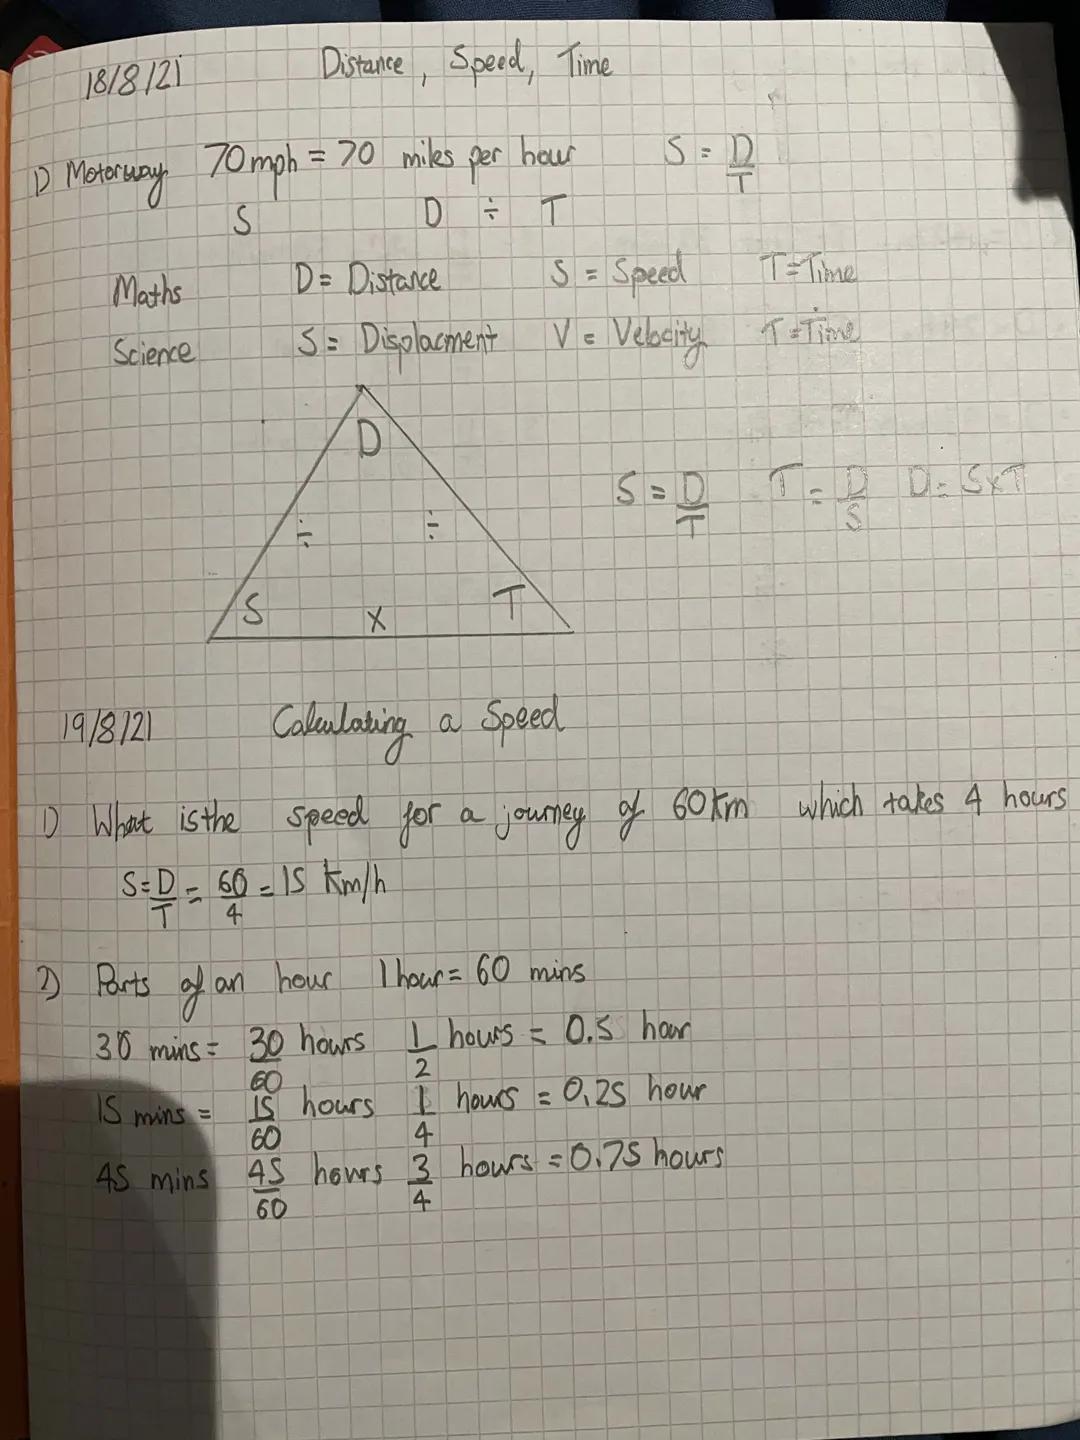 18/8/21 Distance, Speed, Time
1) Motorway 70mph = 70 miles per hour S = D/T
S D ÷ T
Maths D = Distance S = Speed T = Time
Science S = Displacment V = Velocity T = Time
D
÷ ÷
S x T
S = D/T T = D/S D = SxT
19/8/21 Calculating a Speed
1) What is the speed for a journey of 60km which takes 4 hours
S = D/T = 60/4 = 15 km/h
2) Parts of an hour 1 hour = 60 mins
30 mins = 30/60 hours 1/2 hours = 0.5 hour
15 mins = 15/60 hours 1/4 hours = 0.25 hour
45 mins 45/60 hours 3/4 hours = 0.75 hours